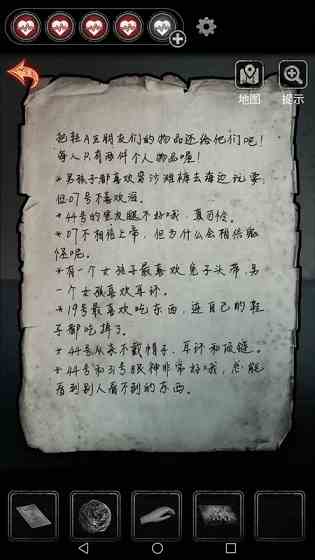 地图
提示
把轻A三朋友们的物品还给他们吧!
每人只有两件个人物品喔!
*男孩子都喜欢穿沙滩裤去海边玩耍,
但07号不喜欢海。
*44号的黑皮腿不好哦,真可怜。
*07不相信上帝,但为什么会相信狐
怪呢。
*有一个女孩子最喜欢兔子头带,另
一个女孩喜欢耳环。
*19号最喜欢吃东西,连自己的鞋
子都吃掉了。
*44号从来不戴帽子、耳环和项链。
*44号和31号眼神非常好哦,总能
看到别人看不到的东西。